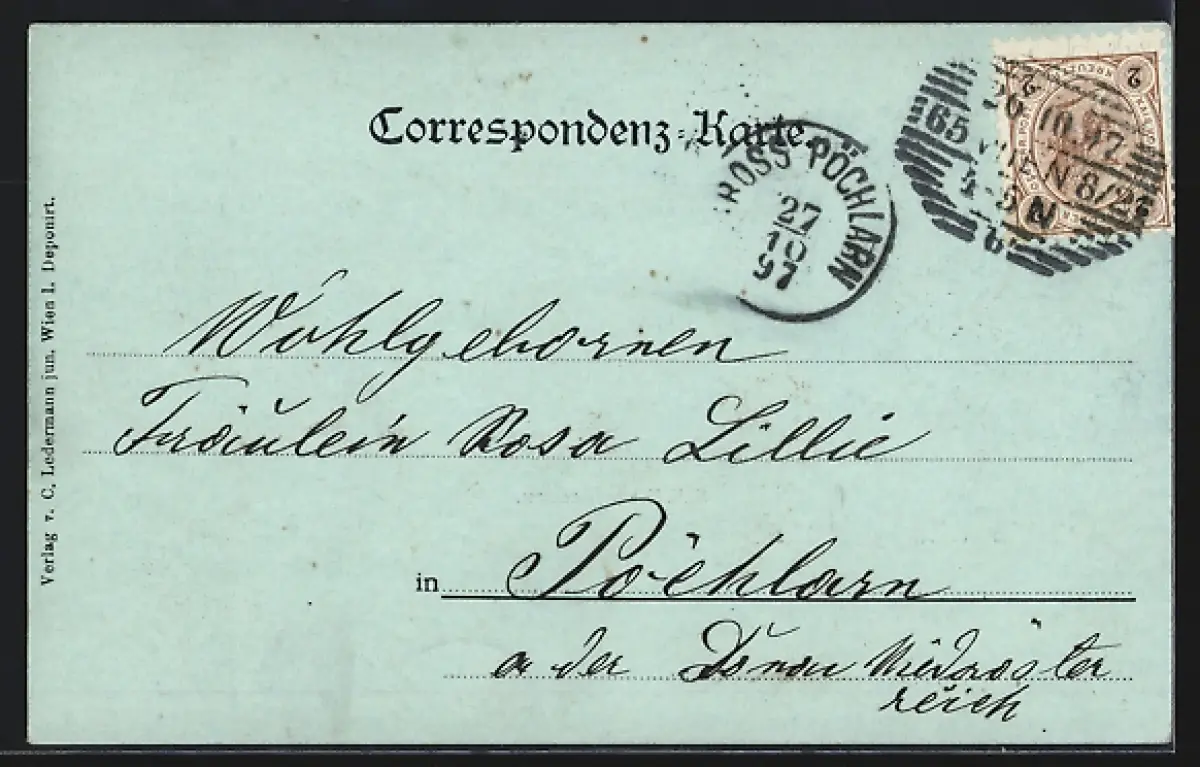 Correspondenz-Karte.
ROSS-PÖCHLARN
27
10
97
65
10.97
N 8/2
2
2
Wohlgebornen
Fräulein Rosa Lillie
in Pöchlarn
a der Donau Niederöster
reich
Verlag v. C. Ledermann jun. Wien I. Deponirt.